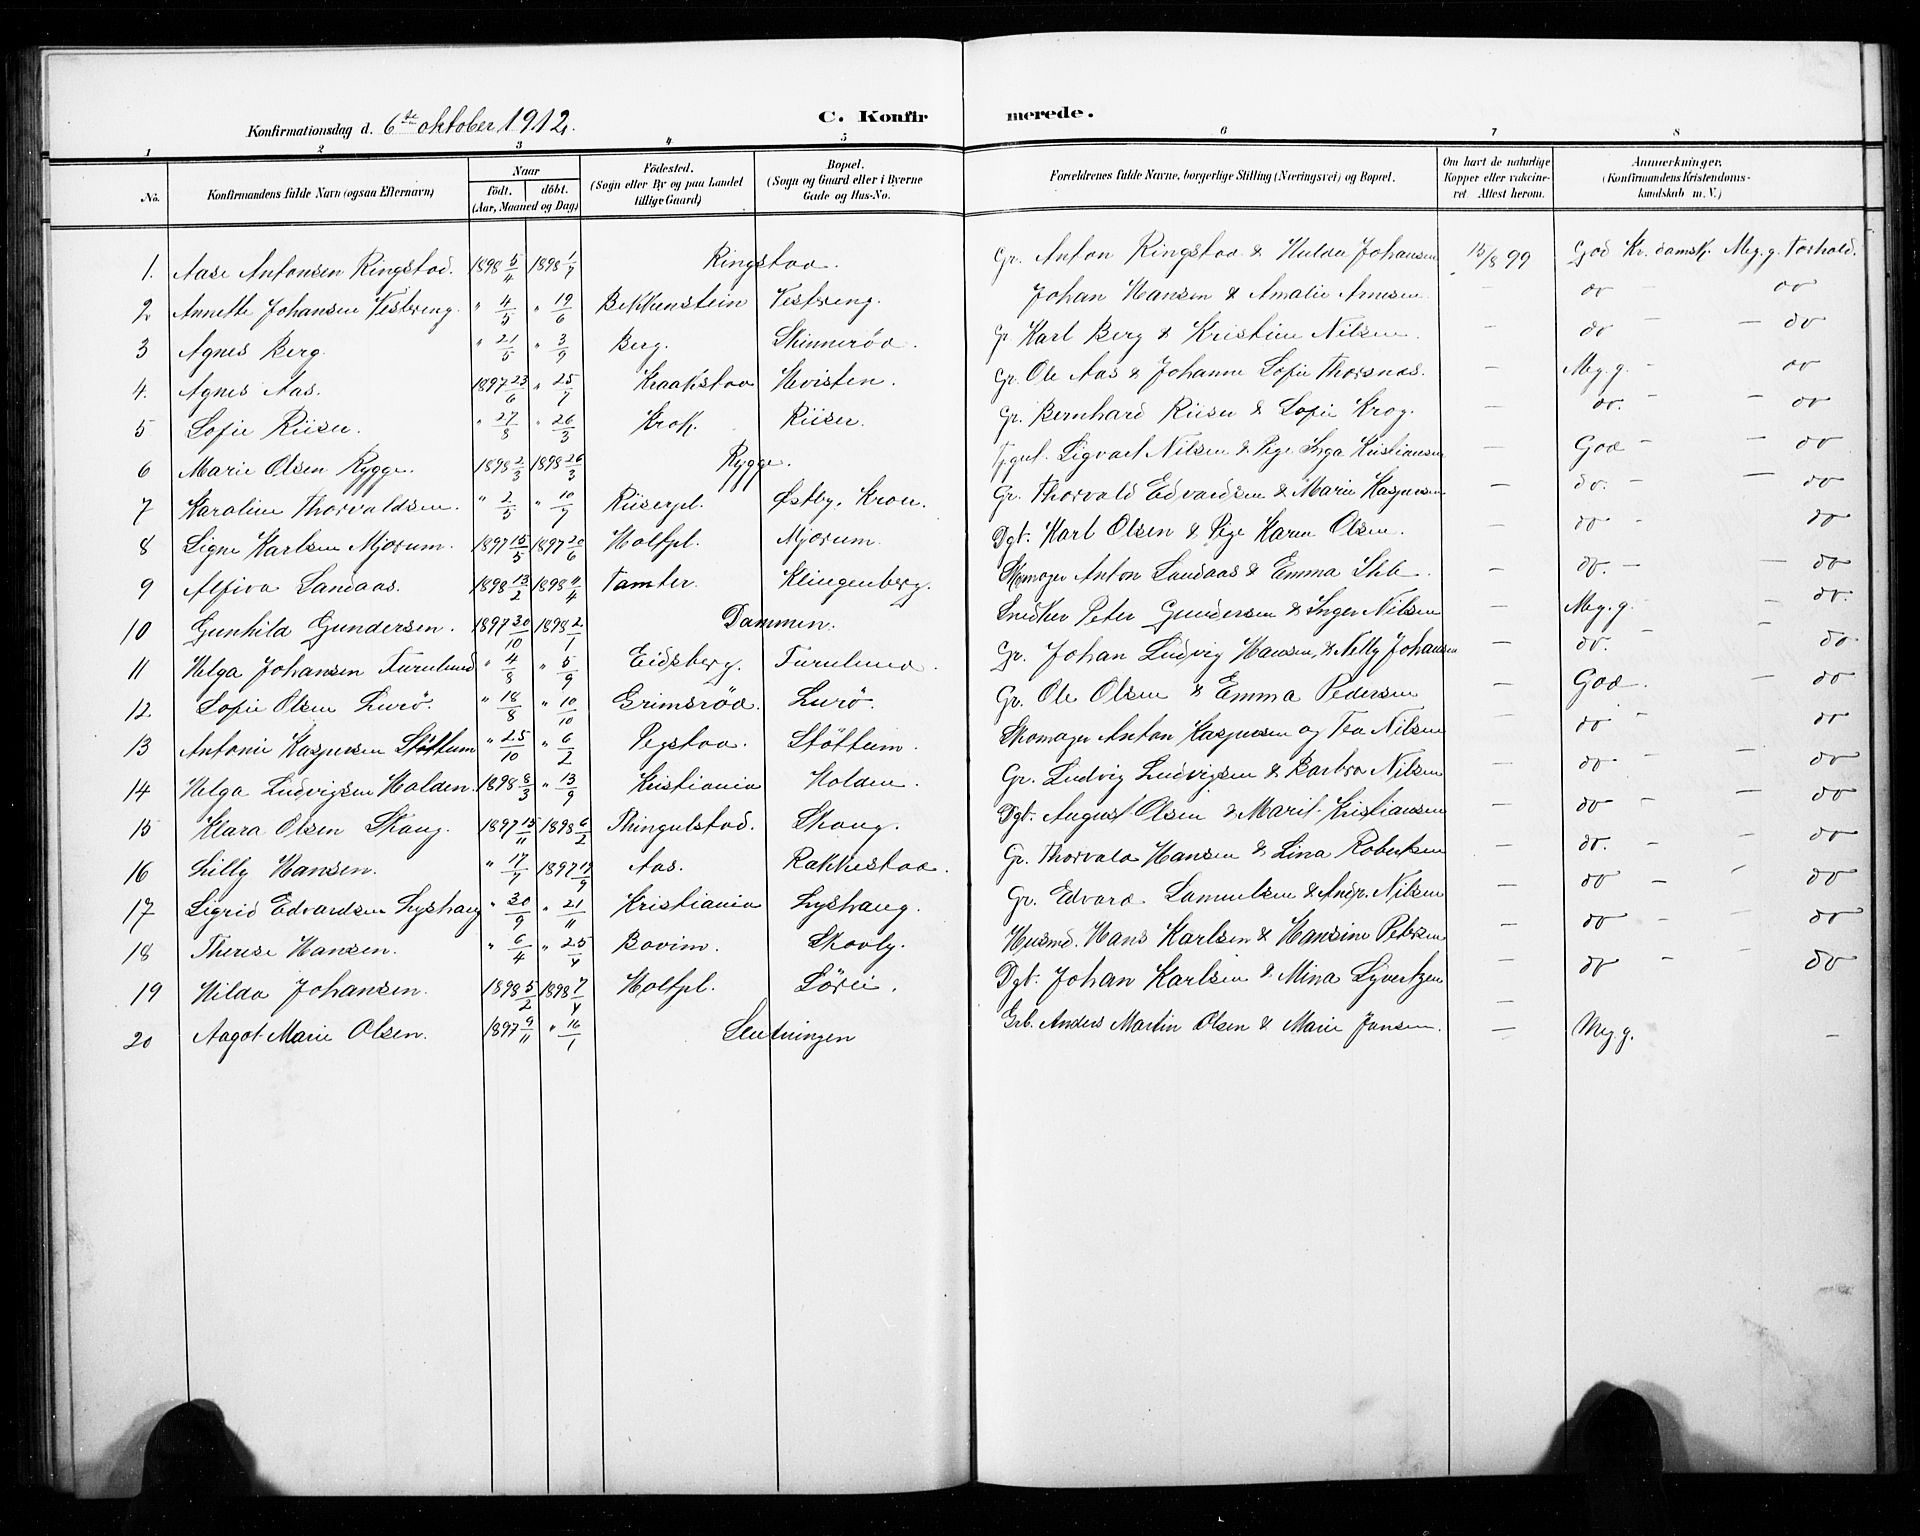 Konfirmationsdag d. 6te oktober 1912. C. Konfirmerede.
1 2 3 4 5 6 7 8
No. Konfirmandens fulde Navn (ogsaa Efternavn) Naar födt. döbt. (Aar, Maaned og Dag) Födested. (Sogn eller By og paa Landet tillige Gaard) Bopæl. (Sogn og Gaard eller i Byerne Gade og Hus-No. Forældrenes fulde Navne, borgerlige Stilling (Næringsvei) og Bopæl. Om havt de naturlige Kopper eller vakcineret. Attest herom. Anmerkninger. (Konfirmandens Kristendomskundskab m. V.)
1. Aase Antonsen Ringstad. 1898 5/4 1898 1/7 Ringstad. Gr. Anton Ringstad & Hulda Johansen 15/8 99 God Kr. damsk. Meg. g. Forhold.
2 Annette Johansen Vestreng. " 4/5 " 19/6 Bekkenstein Vestreng. Johan Hansen & Amalie Arnesen — do — do
3 Agnes Berg. " 21/5 " 3/9 Berg. Skinnerød. Gr. Karl Berg & Kristine Nilsen. — do — do
4. Agnes Aas. 1897 23/6 " 25/7 Kraakstad Hvisten. Gr. Ole Aas & Johanne Sofie Thorsnæs. — Meg. g. — do
5 Sofie Riiser. " 27/8 " 26/3 Krok. Riiser. Gr. Bernhard Riiser & Sofie Krog. — do. — do
6 Marie Olsen Rygge. 1898 2/3 1898 26/3 Rygge. Sigvart Nilsen & Pige Inga Kristiansen — God — do
7 Karoline Thorvaldsen. " 2/5 " 10/7 Riiserpl. Østby, Kroer. Gr. Thorvald Edvardsen & Marie Kaspersen — do. — do
8 Signe Karlsen Mjorum. 1897 15/5 1897 20/6 Holtpl. Mjorum. Dgt. Karl Olsen & Pige Karen Olsen. — do — do
9 Alfiva Sandaas. 1898 13/2 1898 11/4 Tamter. Klingenberg. Skomager Anton Sandaas & Emma — do. — do
10 Gunhild Gundersen. 1897 30/10 1898 2/1 Dammen. Snedker Peter Gundersen & Inger Nilsen — Meg. g. — do.
11 Helga Johansen Furulund " 4/8 " 5/9 Eidsberg. Furulund. Gr. Johan Ludvig Hansen, & Nelly Johansen — do. — do
12. Sofie Olsen Lurö. " 18/8 " 10/10 Grimsrød. Lurö. Gr. Ole Olsen & Emma Pedersen — God. — do
13 Antonie Kaspersen Støttum " 25/10 " 6/2 Pegstad. Støttum. Skomager Anton Kaspersen og Tea Nilsen — do — do
14 Helga Ludvigsen Holden. 1898 8/3 " 13/9 Kristiania Holden. Gr. Ludvig Ludvigsen & Barbro Nilsen — do — do
15 Klara Olsen Skaug. 1897 15/11 1898 6/2 Thingulstad. Skaug. Dgt. August Olsen & Marit Kristiansen — do — do
16 Lilly Hansen. " 17/7 1897 19/9 Aas. Rakkestad. Gr. Thorvald Hansen & Lina Robertsen — do. — do
17 Sigrid Edvardsen Lyshaug " 30/9 " 21/11 Kristiania Lyshaug. Gr. Edvard Samuelsen & Andr. Nilsen — do — do
18 Therese Hansen. " 6/4 " 25/4 Bovim. Skovly. Husmd. Hans Karlsen & Hansine Petersen — do — do
19 Hilda Johansen. 1898 5/2 1898 7/4 Holtpl. Sörli. Dgt. Johan Karlsen & Mina Syvertzen — do — do
20 Aagot Marie Olsen. 1897 9/11 " 16/1 Slutningen Grb. Anders Martin Olsen & Marie Jansen. — Meg. g. —